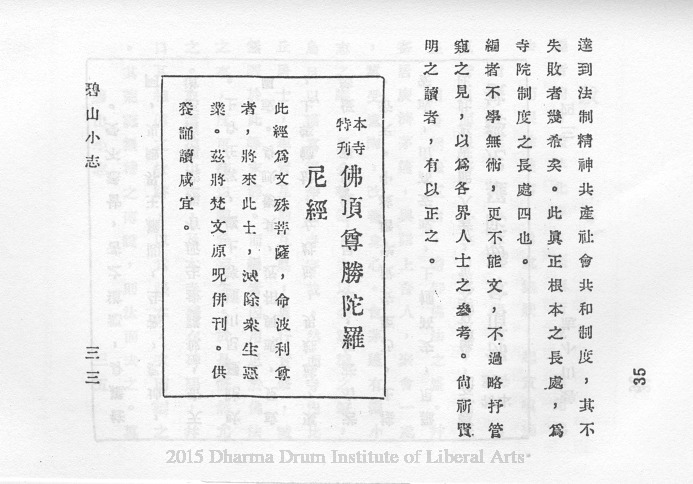 達到法制精神共產社會共和制度，其不
失敗者幾希矣。此眞正根本之長處，爲
寺院制度之長處四也。
編者不學無術，更不能文，不過略抒管
窺之見，以爲各界人士之參考。尙祈賢
明之讀者，有以正之。
本寺
特刊
佛頂尊勝陀羅
尼經
此經爲文殊菩薩，命波利尊
者，將來此土，滅除衆生惡
業。茲將梵文原呪併刊。供
養誦讀咸宜。
碧山小志
三三
35
2015 Dharma Drum Institute of Liberal Arts